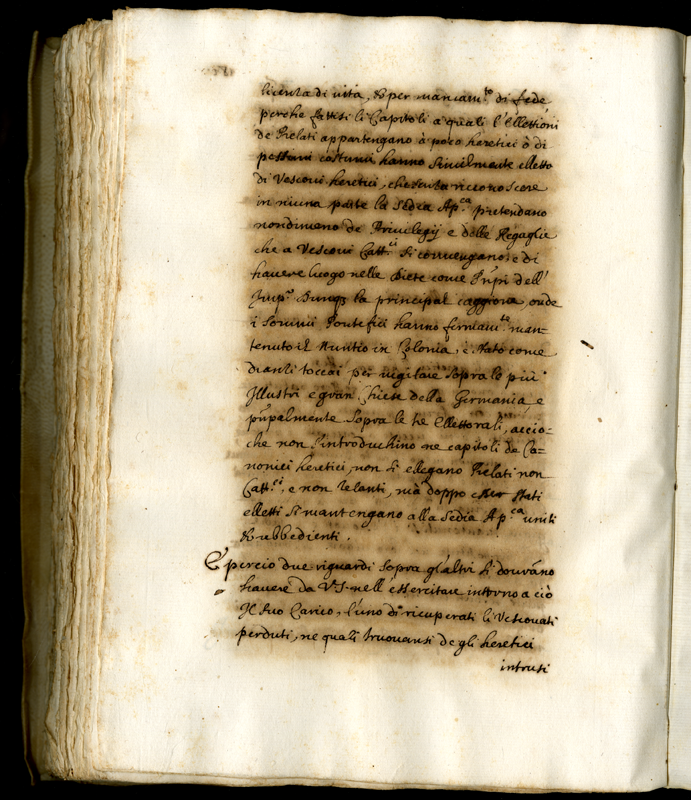 licenza di vita, & per mancam.to di fede,
perche fattisi li Capitoli a quali l'Ellettioni
de Prelati appartengano ò poco heretici ò di
pessimi costumi hanno similmente eletto
di Vescovi heretici, che senza riconoscere
in niuna parte la Sedia Ap.ca pretendano
nondimeno de Privilegij e delle Regaglie
che a Vescovi Catt.ci si convengano, e di
havere luogo nelle Diete come Prñpi dell'
Imp.o Dunq3 la principal caggiona, onde
i Sommi Pontefici hanno fermam.te man=
tenuto il Nuntio in Colonia, è stato come
dianzi toccai per vigilare sopra le più
Illustri e gran Chiese della Germania, e
prñpalmente sopra le tre Ellettorali, accio=
che non s'introduchino ne capitoli de Ca=
nonici heretici, non si ellegano Prelati non
Catt.ci, e non zelanti, mà doppo esser stati
elletti si mantengano alla Sedia Ap.ca uniti
& ubbedienti.
E perciò due riguardi sopra gl'altri si dovrãno
havere da V.S. nell'essercitare intorno a ciò
Il suo Carico, l'uno di ricuperati li Vescovati
perduti, ne quali truovansi degli heretici
intrusi